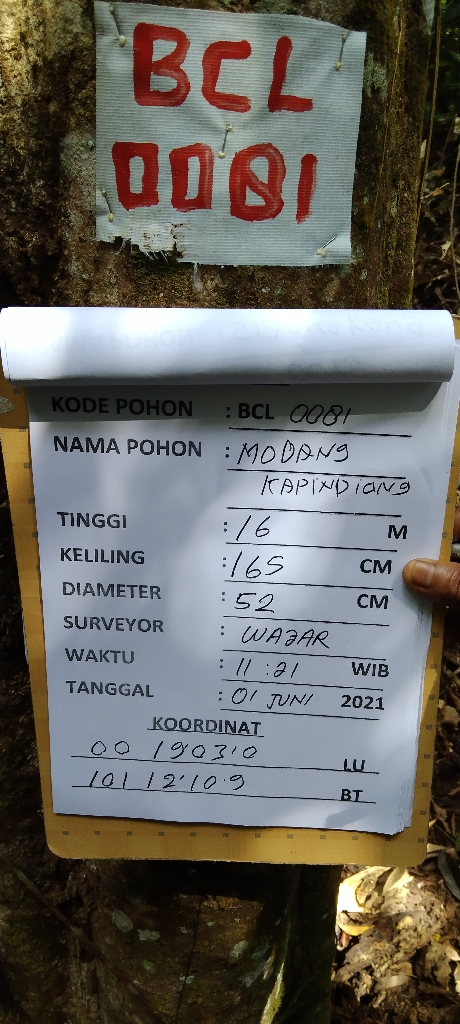 BCL
0081
KODE POHON : BCL 0081
NAMA POHON : MODANG
KAPINDIANG
TINGGI : 16 M
KELILING : 165 CM
DIAMETER : 52 CM
SURVEYOR : WAJAR
WAKTU : 11:21 WIB
TANGGAL : 01 JUNI 2021
KOORDINAT
00 19'03'0 LU
101 12'10.9 BT